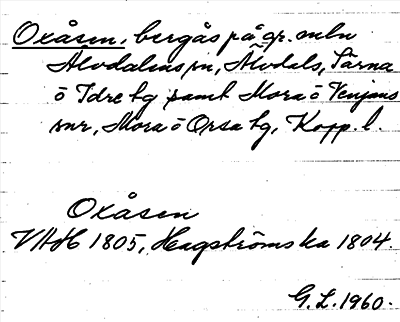 Oxåsen, bergås på gr. mln
Älvdalens sn, Älvdals, Särna
o Idre tg samt Mora o Venjans
snr, Mora o Orsa tg, Kopp. l.
Oxåsen
VAH 1805, Hagströmska 1804.
G. L. 1960.